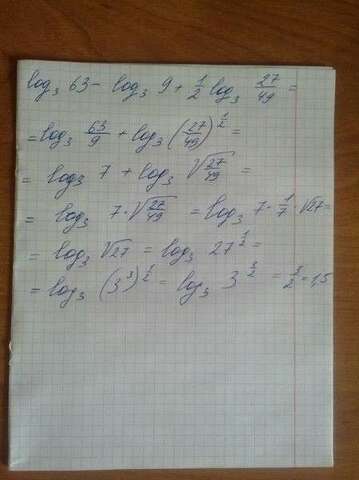 log₃ 63 - log₃ 9 + 1/2 log₃ 27/49 =
= log₃ 63/9 + log₃ (27/49)^(1/2) =
= log₃ 7 + log₃ √(27/49) =
= log₃ 7·√(27/49) = log₃ 7·1/7·√27 =
= log₃ √27 = log₃ 27^(1/2) =
= log₃ (3³)^(1/2) = log₃ 3^(3/2) = 3/2 = 1,5